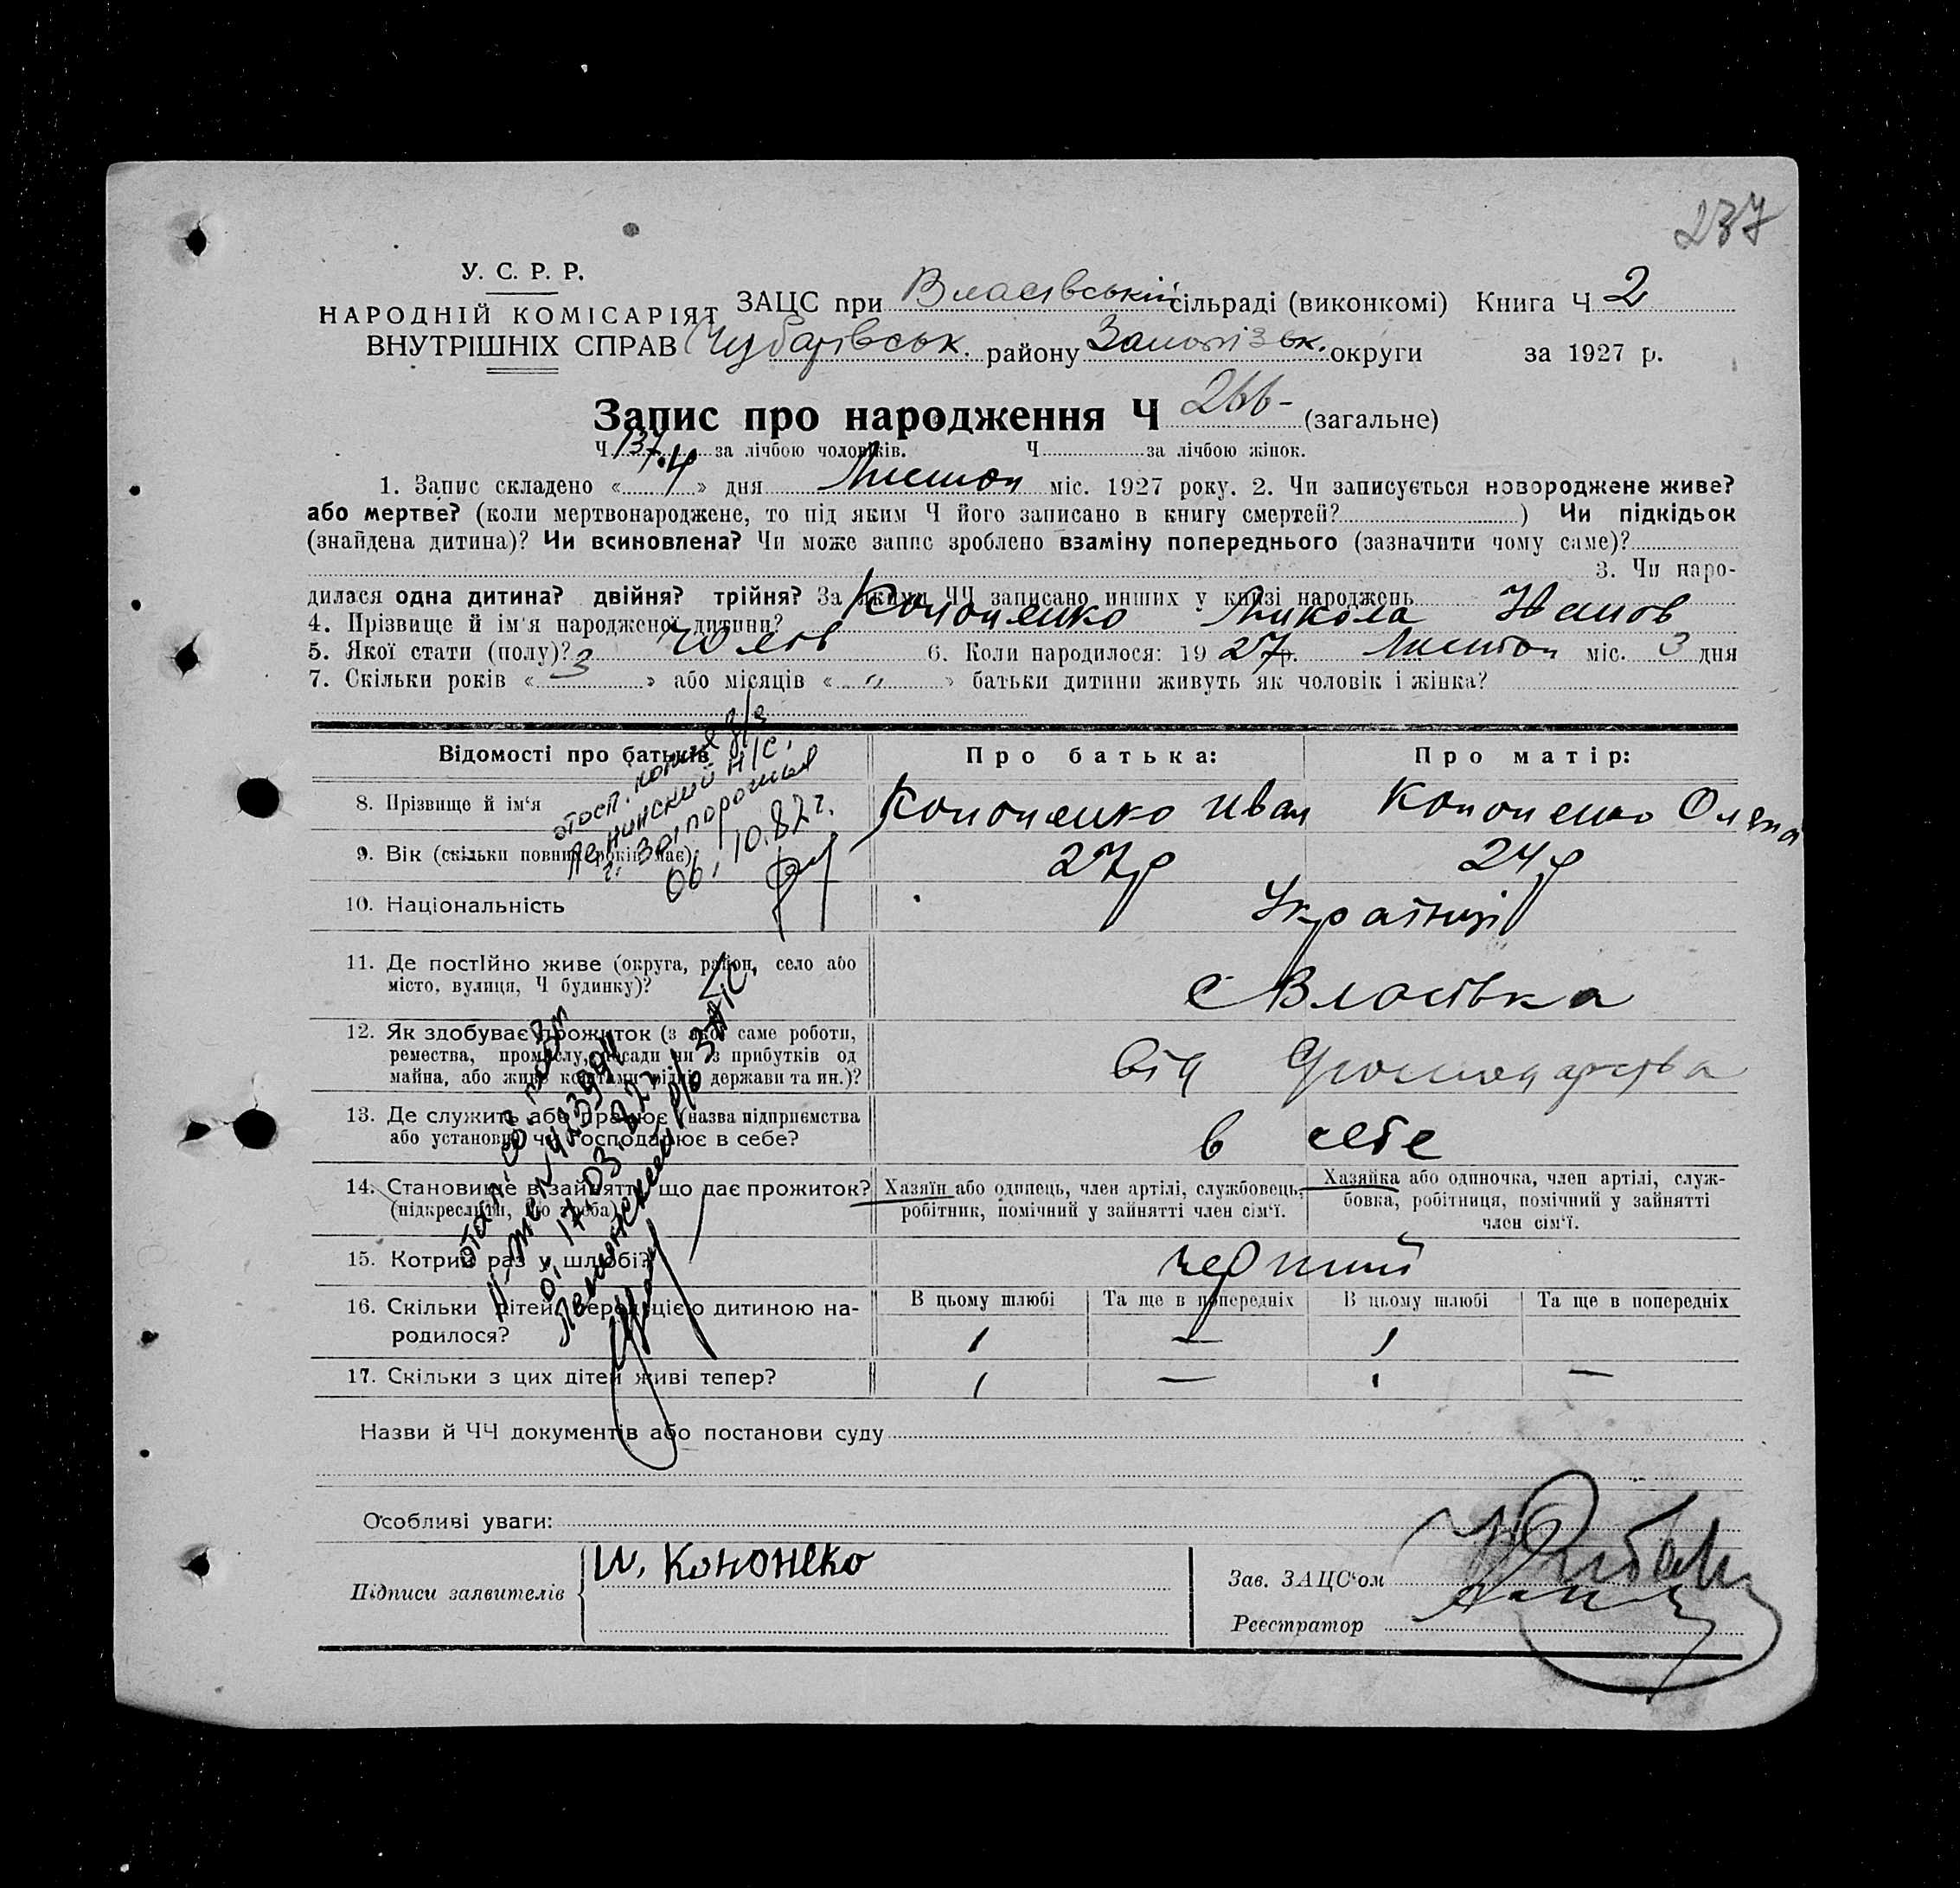 237
У. С. Р. Р.
НАРОДНІЙ КОМІСАРІЯТ
ВНУТРІШНІХ СПРАВ
ЗАЦС при Власівській сільраді (виконкомі) Книга Ч 2
Чубарівськ. району Запорізьк. округи за 1927 р.
Запис про народження Ч 266- (загальне)
Ч 137 за лічбою чоловіків. Ч за лічбою жінок.
1. Запис складено «14» дня Листоп міс. 1927 року. 2. Чи записується новороджене живе?
або мертве? (коли мертвонароджене, то під яким Ч його записано в книгу смертей? ) Чи підкідьок
(знайдена дитина)? Чи всиновлена? Чи може запис зроблено взаміну попереднього (зазначити чому саме)?
3. Чи наро-
дилася одна дитина? двійня? трійня? За якими ЧЧ записано инших у книзі народжень
4. Прізвище й ім'я народженої дитини? Кононенко Микола Иванов
5. Якої стати (полу)? Чолов 6. Коли народилося: 1927р. Листоп міс. 3 дня
7. Скільки років «3» або місяців « » батьки дитини живуть як чоловік і жінка?
Відомості про батьків Про батька: Про матір:
8. Прізвище й ім'я Кононенко Иван Кононенко Олена
9. Вік (скільки повних років має) 27р 24р
10. Національність Українці
11. Де постІйно живе (округа, район, село або
місто, вулиця, Ч будинку)? с Власівка
12. Як здобуває прожиток (з якої саме роботи,
ремества, промислу, посади чи з прибутків од
майна, або живе коштами рідні, держави та ин.)? від
13. Де служить або працює (назва підприємства
або установи) чи господарює в себе? в себе
14. Становище в зайнятті, що дає прожиток?
(підкреслити, що треба)
Хазяїн або одинець, член артілі, службовець,
робітник, помічний у зайнятті член сім'ї.
Хазяйка або одиночка, член артілі, служ-
бовка, робітниця, помічний у зайнятті
член сім'ї.
15. Котрий раз у шлюбі? перший
16. Скільки дітей перед цією дитиною на-
родилося?
В цьому шлюбі Та ще в попередніх В цьому шлюбі Та ще в попередніх
1 — 1
17. Скільки з цих дітей живі тепер? 1 — 1 —
Назви й ЧЧ документів або постанови суду
Особливі уваги:
Підписи заявителів И. Кононеко
Зав. ЗАЦС'ом
Реєстратор
Ленинский Н/С.
г. Запорожья
06. 10.82 г.